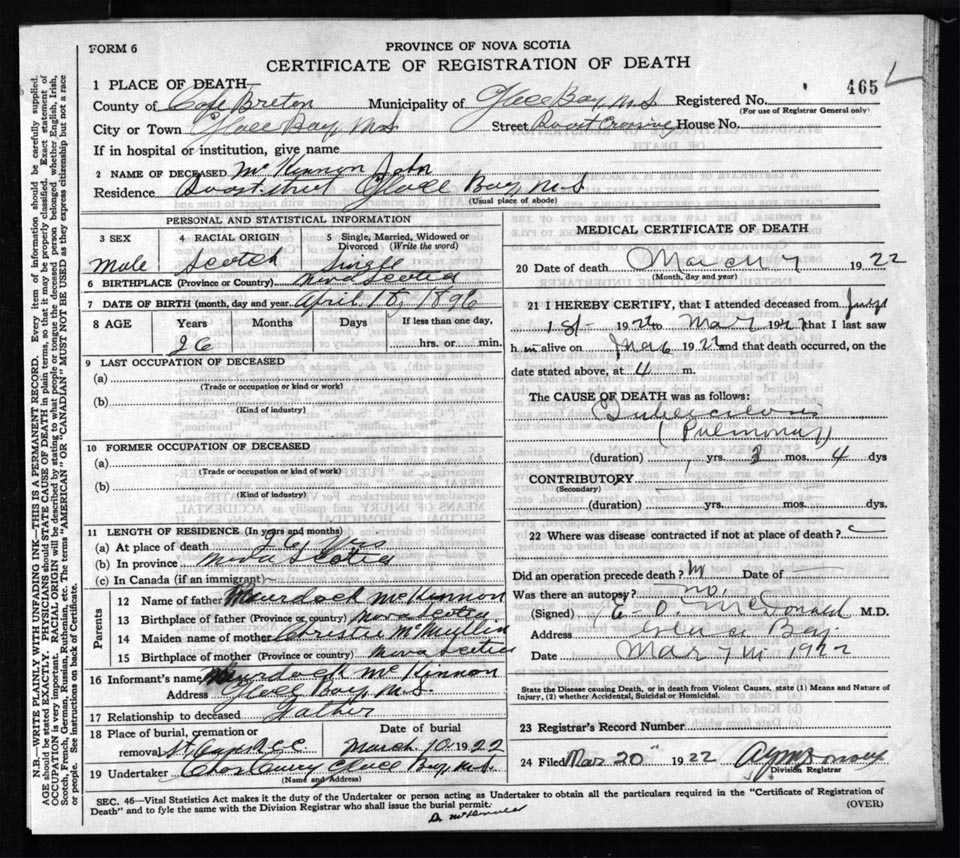 FORM 6
PROVINCE OF NOVA SCOTIA
CERTIFICATE OF REGISTRATION OF DEATH
465
1 PLACE OF DEATH
County of Cape Breton Municipality of Glace Bay N.S Registered No.
(For use of Registrar General only)
City or Town Glace Bay N.S Street Crossing House No.
If in hospital or institution, give name
2 NAME OF DECEASED McKinnon John
Residence street Glace Bay N.S
(Usual place of abode)
PERSONAL AND STATISTICAL INFORMATION
3 SEX
Male
4 RACIAL ORIGIN
Scotch
5 Single, Married, Widowed or Divorced (Write the word)
Single
6 BIRTHPLACE (Province or Country) Nova Scotia
7 DATE OF BIRTH (month, day and year) April 18, 1896
8 AGE Years Months Days If less than one day,
26 hrs. or min.
9 LAST OCCUPATION OF DECEASED
(a)
(Trade or occupation or kind or work)
(b)
(Kind of industry)
10 FORMER OCCUPATION OF DECEASED
(a)
(Trade or occupation or kind or work)
(b)
(Kind of industry)
11 LENGTH OF RESIDENCE (In years and months)
(a) At place of death yrs
(b) In province Nova Scotia
(c) In Canada (if an immigrant)
Parents
12 Name of father Murdoch McKinnon
13 Birthplace of father (Province or country) Nova Scotia
14 Maiden name of mother Christie McMullin
15 Birthplace of mother (Province or country) Nova Scotia
16 Informant's name Murdoch McKinnon
Address Glace Bay N.S.
17 Relationship to deceased Father
18 Place of burial, cremation or removal
Date of burial
March 10 1922
19 Undertaker Chas Curry Glace Bay N.S.
(Name and Address)
MEDICAL CERTIFICATE OF DEATH
20 Date of death March 7 1922
(Month, day and year)
21 I HEREBY CERTIFY, that I attended deceased from
1st 1922 to Mar 7 1922 that I last saw
h im alive on Mar 6 1922 and that death occurred, on the
date stated above, at 4 m.
The CAUSE OF DEATH was as follows:
Tuberculosis
(Pulmonary)
(duration) yrs. mos. 4 dys
CONTRIBUTORY
(Secondary)
(duration) yrs. mos. dys.
22 Where was disease contracted if not at place of death?
Did an operation precede death? N Date of
Was there an autopsy? no.
(Signed) E. O. McDonald M.D.
Address Glace Bay
Date Mar 7th 1922
State the Disease causing Death, or in death from Violent Causes, state (1) Means and Nature of Injury, (2) whether Accidental, Suicidal or Homicidal.
23 Registrar's Record Number
24 Filed Mar 20 1922
Division Registrar
SEC. 46—Vital Statistics Act makes it the duty of the Undertaker or person acting as Undertaker to obtain all the particulars required in the "Certificate of Registration of
Death" and to fyle the same with the Division Registrar who shall issue the burial permit.
(OVER)
N.B.—WRITE PLAINLY WITH UNFADING INK—THIS IS A PERMANENT RECORD. Every item of information should be carefully supplied.
AGE should be stated EXACTLY. PHYSICIANS should STATE CAUSE OF DEATH in plain terms, so that it may be properly classified. Exact statement of
OCCUPATION is very important. RACIAL ORIGIN will be described by stating to what people or tongue the deceased person belonged whether English, Irish,
Scotch, French, German, Russian, Ruthenian, etc. The terms "AMERICAN" OR "CANADIAN" MUST NOT BE USED as they express citizenship but not a race
or people. See instructions on back of Certificate.